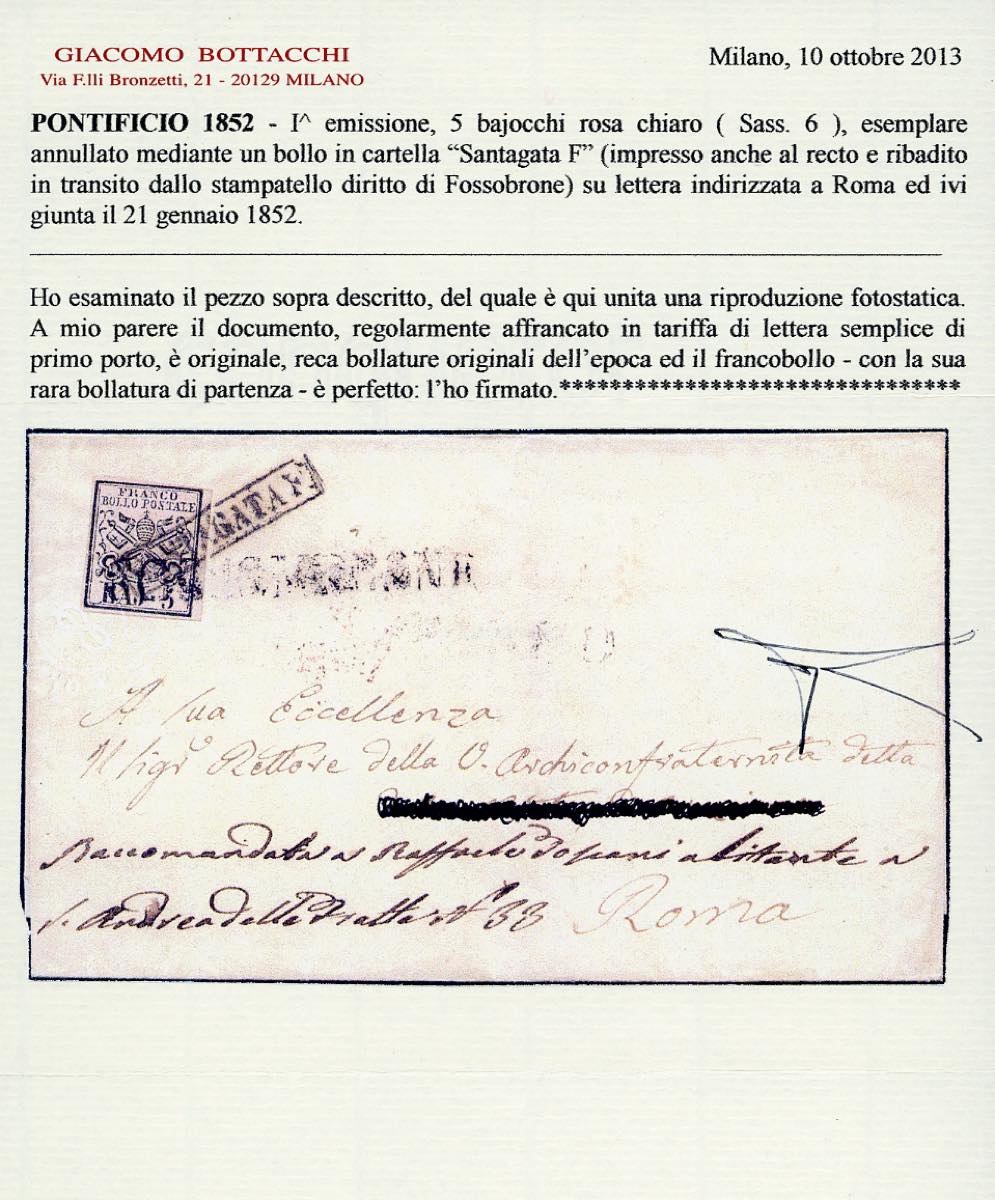 GIACOMO BOTTACCHI
Via F.lli Bronzetti, 21 - 20129 MILANO
Milano, 10 ottobre 2013
PONTIFICIO 1852 - I^ emissione, 5 bajocchi rosa chiaro ( Sass. 6 ), esemplare
annullato mediante un bollo in cartella “Santagata F” (impresso anche al recto e ribadito
in transito dallo stampatello diritto di Fossobrone) su lettera indirizzata a Roma ed ivi
giunta il 21 gennaio 1852.
Ho esaminato il pezzo sopra descritto, del quale è qui unita una riproduzione fotostatica.
A mio parere il documento, regolarmente affrancato in tariffa di lettera semplice di
primo porto, è originale, reca bollature originali dell’epoca ed il francobollo - con la sua
rara bollatura di partenza - è perfetto: l’ho firmato.********************************
FRANCO
BOLLO POSTALE
GATA F.
BAJ 5
A sua Eccellenza
Il sigr Rettore della V. Archiconfraternita della
Raccomandata a Raffaele abitante a
S. Andrea delle Fratte N° 33 Roma